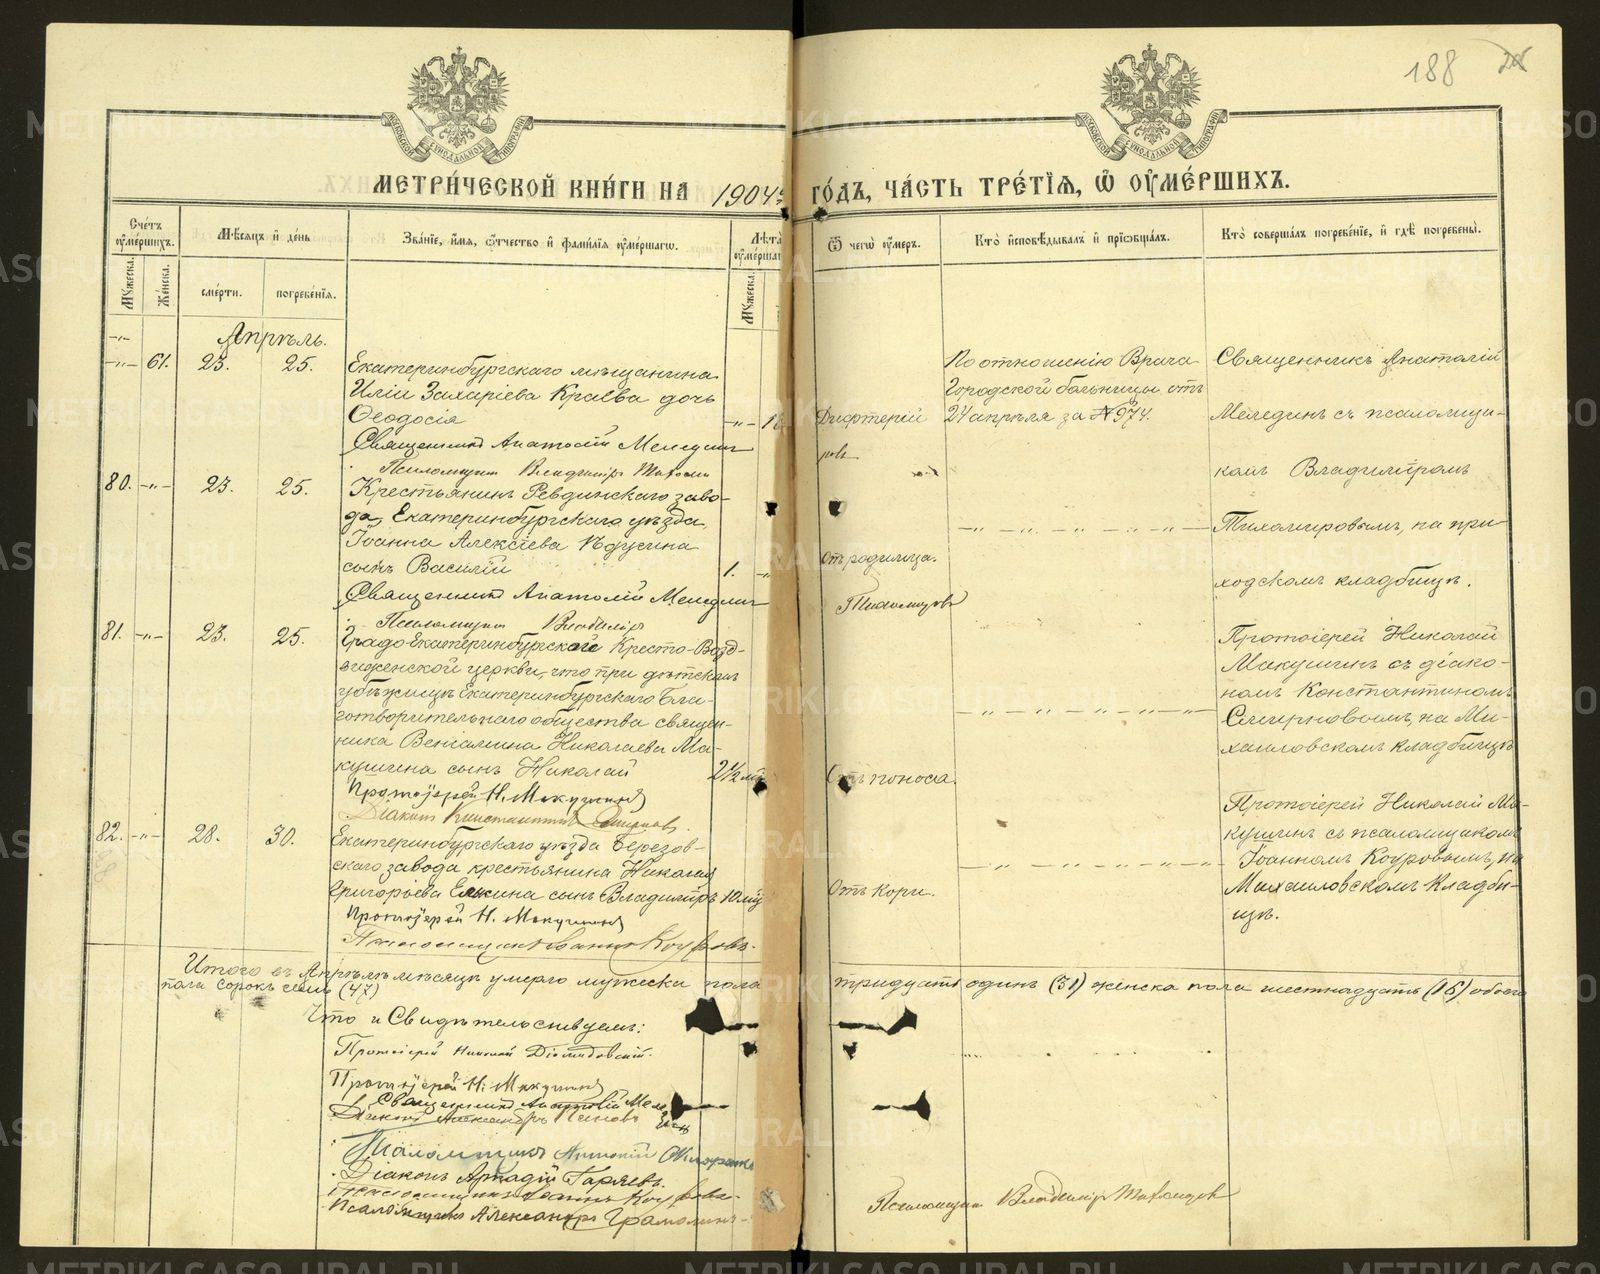 188
МЕТРИ́ЧЕСКОЙ КНИ́ГИ НА 1904й ГО́ДЪ, ЧА́СТЬ ТРЕ́ТЇѦ, Ѿ ОУМЕ́РШИХЪ.
Сче́тъ оуме́ршихъ.
Мѣ́сяцъ и де́нь
Зва́нїе, и́мя, ѻ́тчество и фами́лїя оуме́ршагѡ.
Лѣ́та оуме́ршаг
Ѿ чегѡ̀ оу́меръ.
Кто̀ и҆сповѣ́дывалъ и҆ прїѡбща́лъ.
Кто̀ соверша́лъ погребе́нїе, и҆ гдѣ̀ погребены̀.
Мꙋ́жеска.
Же́нска.
сме́рти.
погребе́нїя.
Мꙋ́жеска.
Апрѣль.
61. 23. 25.
Екатеринбургскаго мѣщанина
Иліи Захаріева Краева дочь
Ѳеодосія
Священникъ Анатолій Меледин
Псаломщикъ Владиміръ
Дифтерій
По отношенію Врача
Городской больницы отъ
24 апрѣля за №974.
Священникъ Анатолій
Меледин съ псаломщи-
комъ Владиміромъ
Тихомировымъ, на при-
ходскомъ кладбищѣ.
80. 23. 25.
Крестьянинъ Ревдинскаго заво-
да, Екатеринбургскаго уѣзда
Іоанна Алексіева
сынъ Василій
1.
Священникъ Анатолій Меледин
Псаломщикъ
Отъ родимца.
81. 23. 25.
Градо-Екатеринбургской Кресто-Возд-
виженской церкви, что при дѣтскомъ
убѣжищѣ Екатеринбургскаго Бла-
готворительнаго общества священ-
ника Веніамина Николаева Ма-
кушина сынъ Николай
2½ мѣ
Протоіерей Н. Макушинъ
Діаконъ Константинъ Смирновъ.
Отъ поноса.
Протоіерей Николай
Макушинъ съ діако-
номъ Константиномъ
Смирновымъ, на Ми-
хаиловскомъ кладбищѣ
82. 28. 30.
Екатеринбургскаго уѣзда Березов-
скаго завода крестьянина Николая
Григорьева Елькина сынъ Владиміръ 10 мѣ
Протоіерей Н. Макушинъ
Псаломщикъ Іоаннъ Коуровъ.
Отъ кори.
Протоіерей Николай Ма-
кушинъ съ псаломщикомъ
Іоанномъ Коуровымъ, на
Михаиловскомъ кладби-
щѣ.
Итого въ Апрѣлѣ мѣсяцѣ умерло мужеска пола тридцать одинъ (31) женска пола шестнадцать (16) обоего
пола сорокъ семь (47)
Что и Свидѣтельствуемъ:
Протоіерей Николай Діомидовскій.
Протоіерей Н. Макушинъ
Священникъ Анатолій Меледин
Діаконъ Александръ
Псаломщикъ
Діаконъ Аркадій Гаряевъ.
Псаломщикъ Іоаннъ Коуровъ.
Псаломщикъ Александръ Грамолинъ
Псаломщикъ Владиміръ Тихомировъ
METRIKI.GASO-URAL.RU